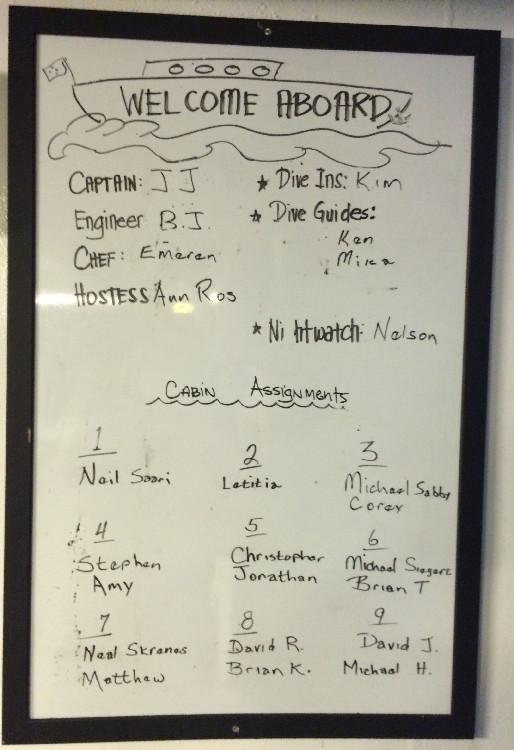 WELCOME ABOARD
CAPTAIN: JJ
Engineer B.J.
CHEF: Emeren
HOSTESS Ann Ros
★ Dive Ins: Kim
★ Dive Guides:
Ken
Mika
★ Ni htwatch: Nelson
CABIN ASSIGNMENTS
1
Neil Saari
2
Letitia
3
Michael Sabby
Corey
4
Stephen
Amy
5
Christopher
Jonathan
6
Michael
Brian T
7
Neal Skrenes
Matthew
8
David R.
Brian K.
9
David J.
Michael H.